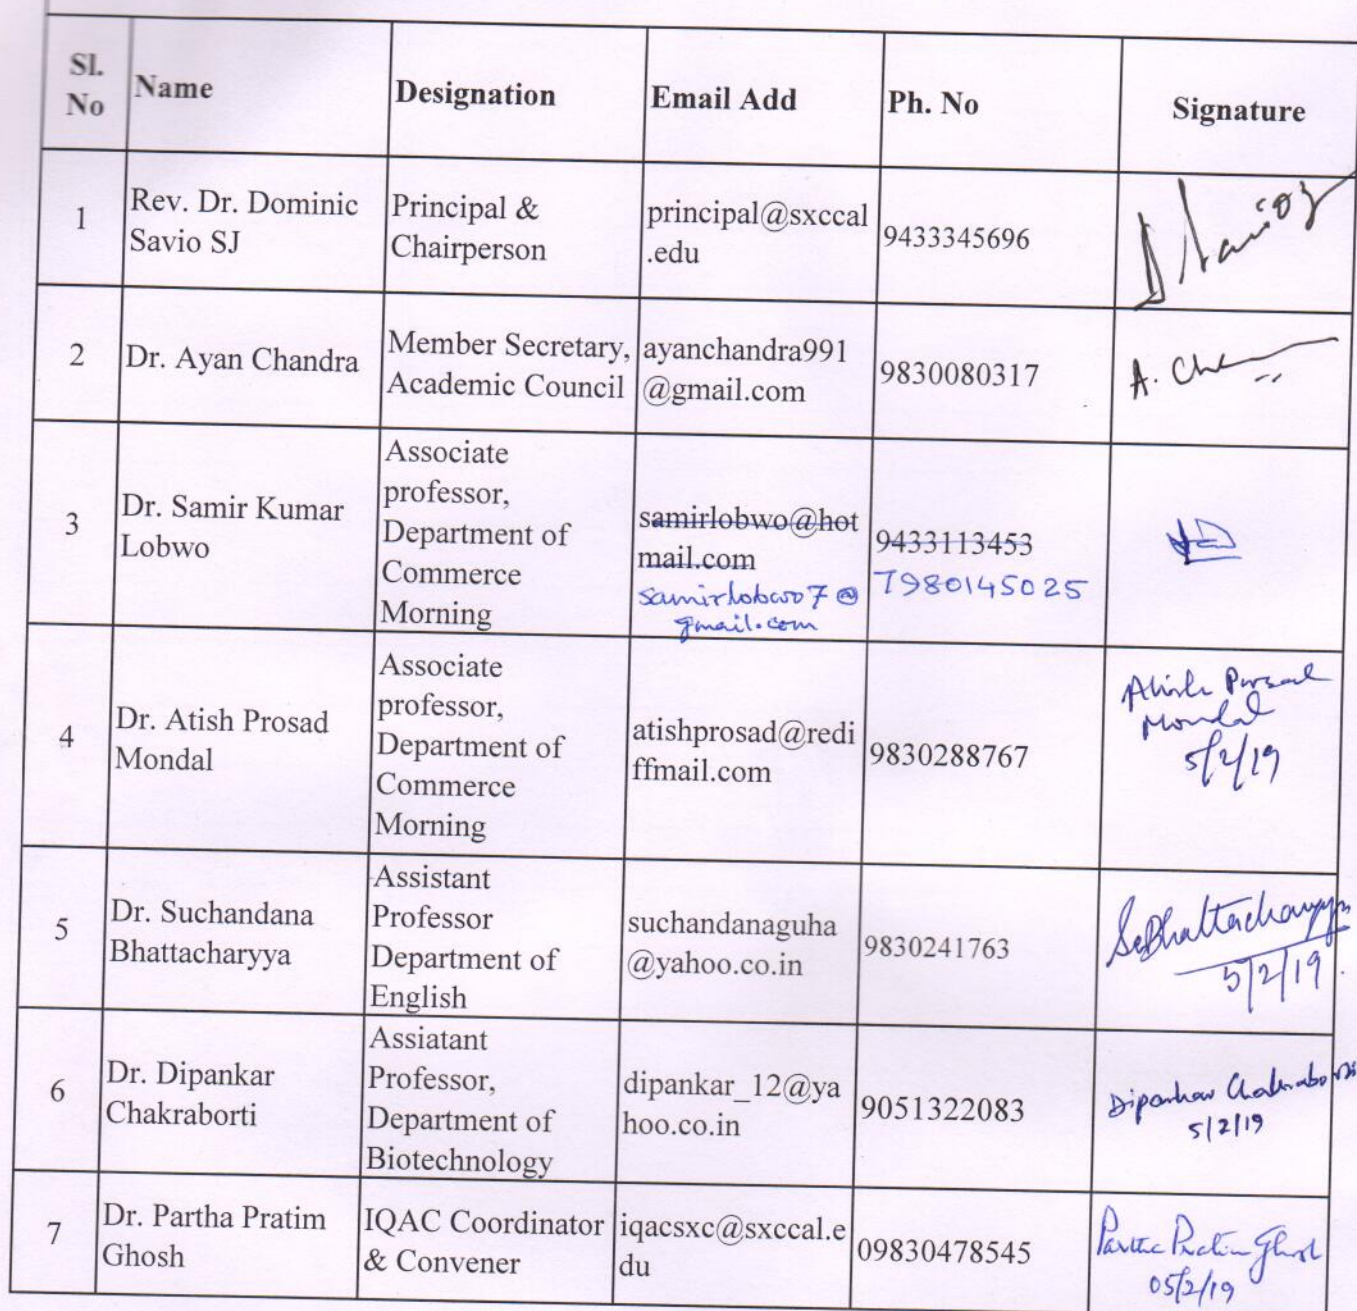 Sl. No
Name
Designation
Email Add
Ph. No
Signature
1
Rev. Dr. Dominic
Savio SJ
Principal &
Chairperson
principal@sxccal
.edu
9433345696
2
Dr. Ayan Chandra
Member Secretary,
Academic Council
ayanchandra991
@gmail.com
9830080317
A. Cha
3
Dr. Samir Kumar
Lobwo
Associate
professor,
Department of
Commerce
Morning
samirlobwo@hot
mail.com
samirlobwo7@
gmail.com
9433113453
7980145025
4
Dr. Atish Prosad
Mondal
Associate
professor,
Department of
Commerce
Morning
atishprosad@redi
ffmail.com
9830288767
Atish Prosad
Mondal
5/2/19
5
Dr. Suchandana
Bhattacharyya
Assistant
Professor
Department of
English
suchandanaguha
@yahoo.co.in
9830241763
SBhattacharyya
5/2/19
6
Dr. Dipankar
Chakraborti
Assiatant
Professor,
Department of
Biotechnology
dipankar_12@ya
hoo.co.in
9051322083
Dipankar Chakraborti
5/2/19
7
Dr. Partha Pratim
Ghosh
IQAC Coordinator
& Convener
iqacsxc@sxccal.e
du
09830478545
Partha Pratim Ghosh
05/2/19